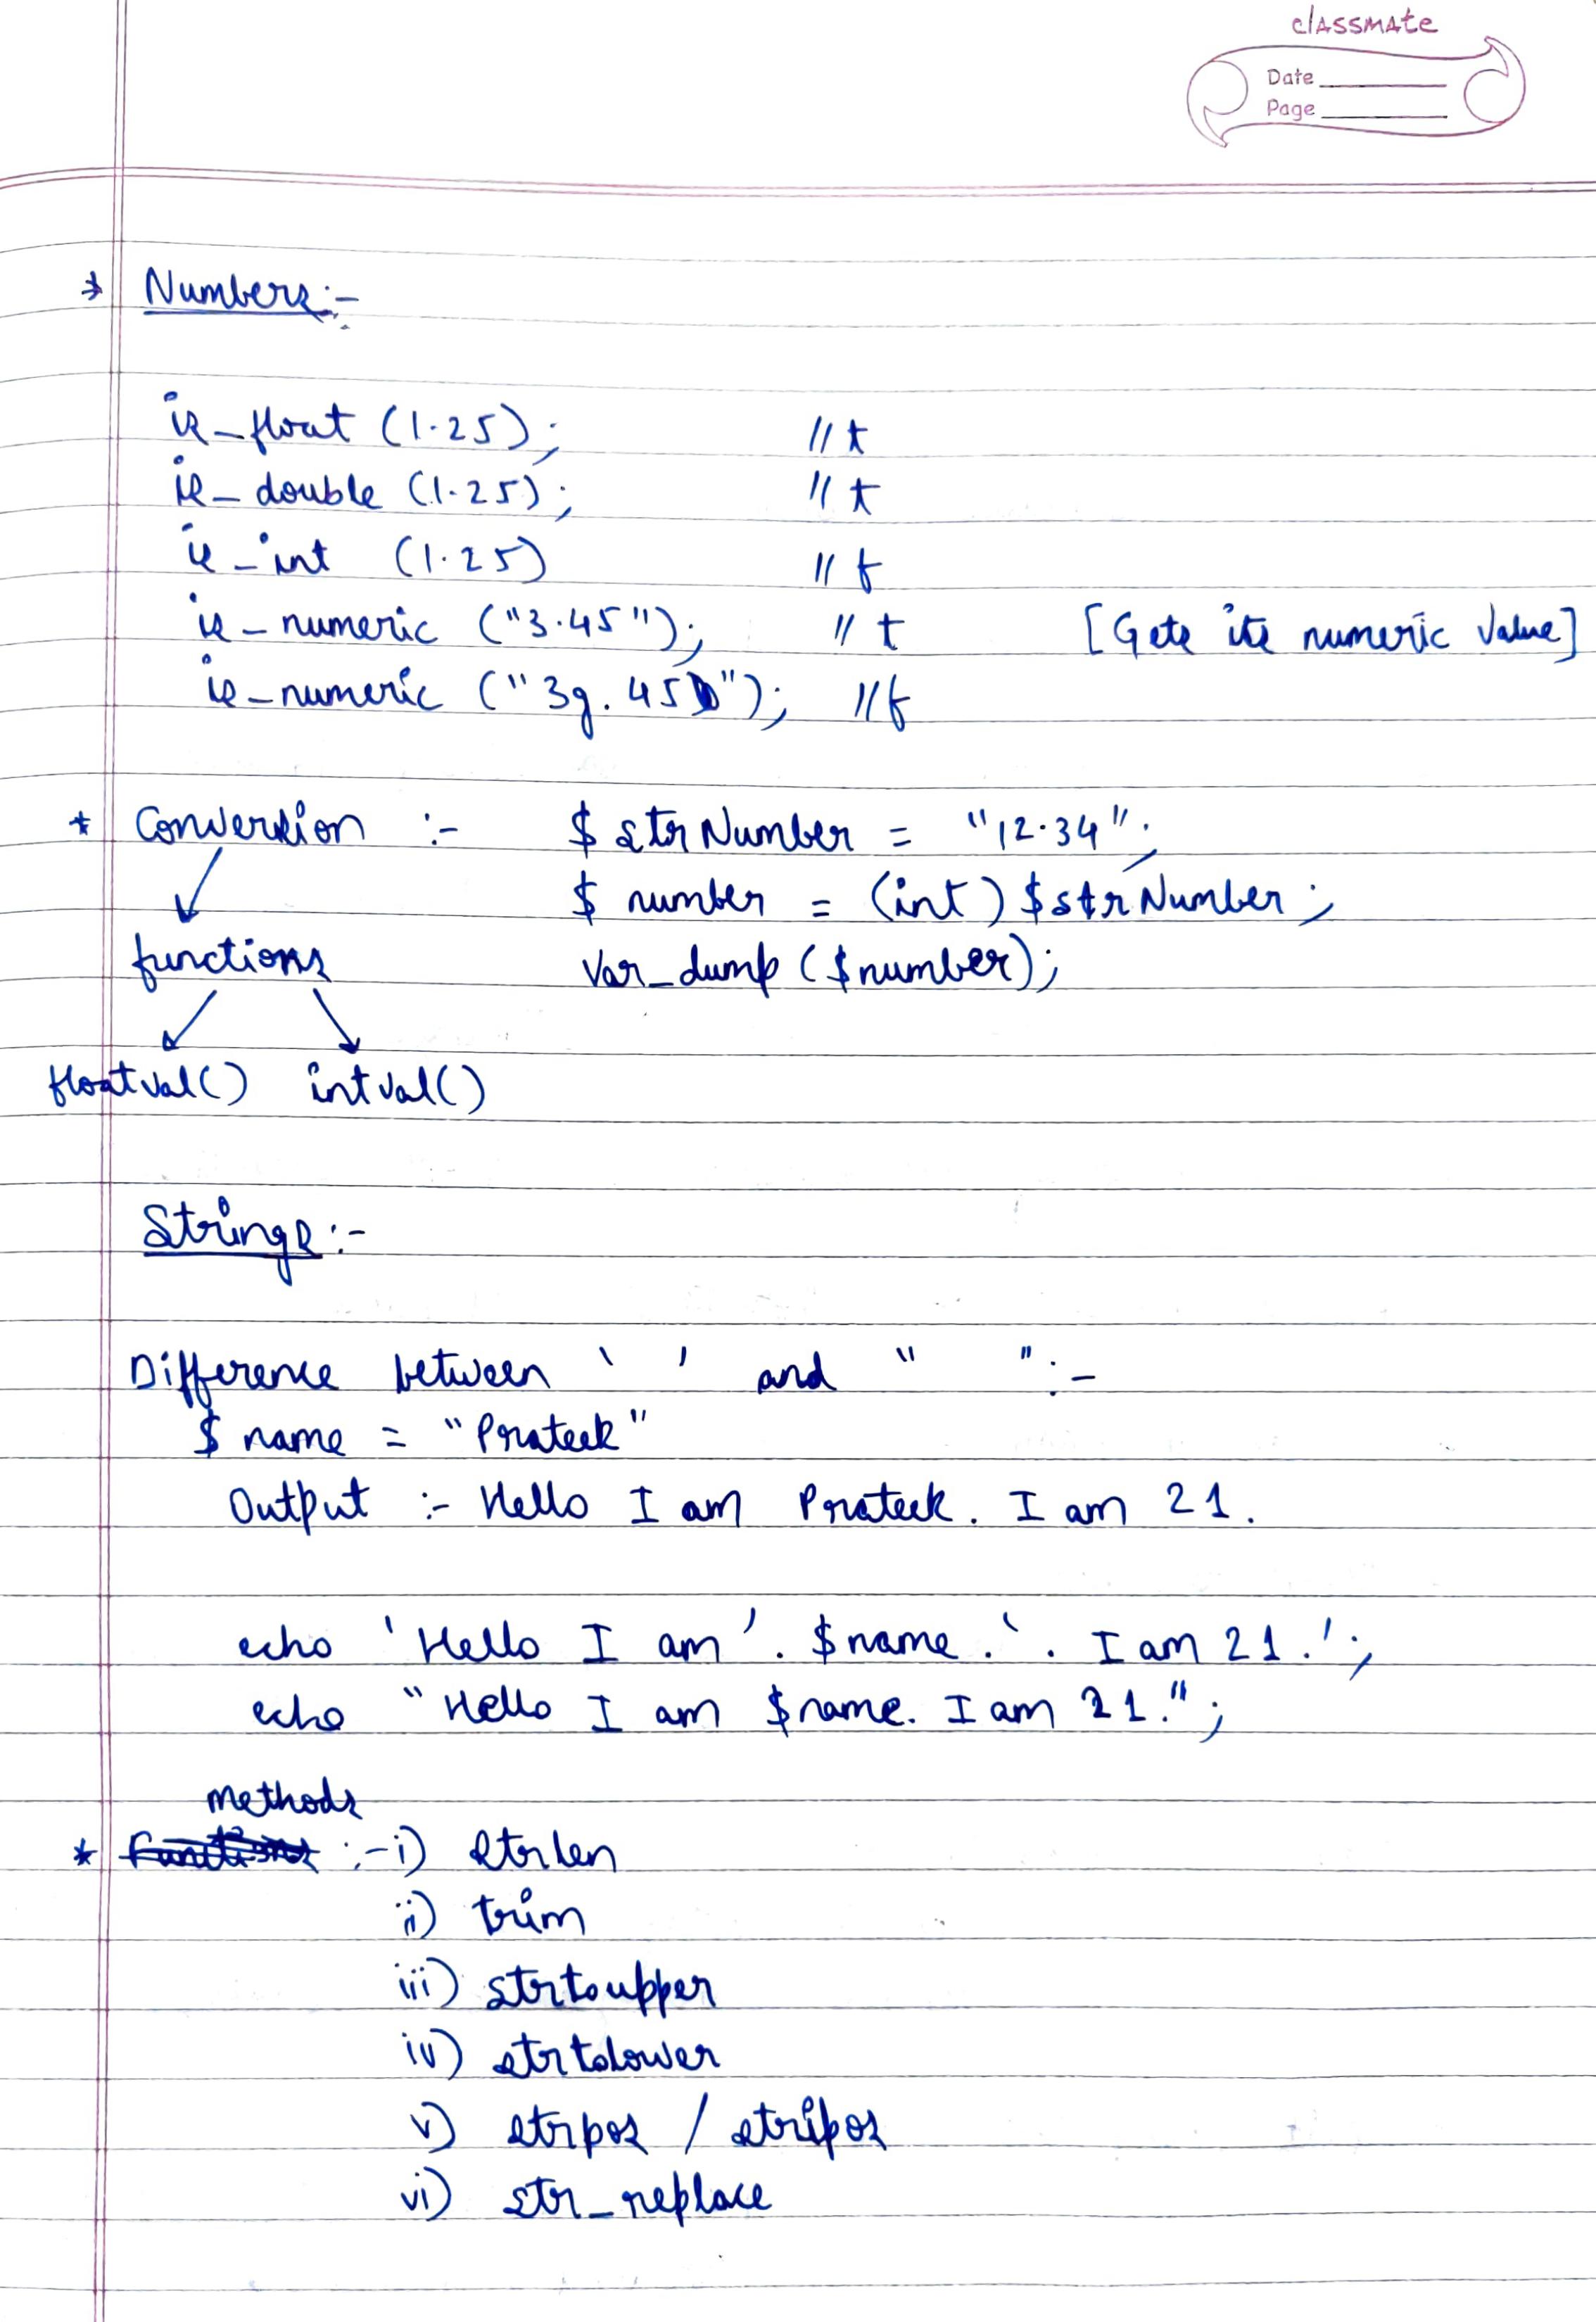 classmate
Date
Page
* Numbers:-
is_float (1.25); //t
is_double (1.25); //t
is_int (1.25) //f
is_numeric ("3.45"); //t [Gets its numeric value]
is_numeric ("3g.45"); //f
* Conversion :- $strNumber = "12.34";
$number = (int)$strNumber;
functions var_dump($number);
floatval() intval()
Strings:-
Difference between ' ' and " ":-
$name = "Prateek"
Output :- Hello I am Prateek. I am 21.
echo 'Hello I am'. $name.'. I am 21.';
echo "Hello I am $name. I am 21.";
methods
* Functions :- i) strlen
ii) trim
iii) strtoupper
iv) strtolower
v) strpos / stripos
vi) str_replace